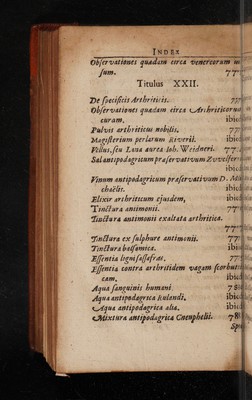 INDEX
Observationes quædam circa venereorum
sum. 77
Titulus XXII.
De specificis Arthriticis. 77
Observationes quædam circa Arthriticorum
curam. ibid
Pulvis arthriticus nobilis. 77
Magisterium perlarum Riverii. ibid
Vellus, seu Lana aurea Ioh. Weidneri. 77
Sal antipodagricum præservativum
ibid
Vinum antipodagricum præservativum D.
choëlis. ibid
Elixir arthriticum ejusdem, ibid
Tinctura antimonii. 77
Tinctura antimonii exaltata arthritica.
77
Tinctura ex sulphure antimonii. 77
Tinctura balsamica. ibid
Essentia ligni sassafras. 77
Essentia contra arthritidem vagam scorbuti
cam. ibid
Aqua sanguinis humani. 78
Aqua antipodagrica Rulandi. ibid
Aqua antipodagrica alia. ibid
Mixtura antipodagrica Cneuphelii. 78
Spi